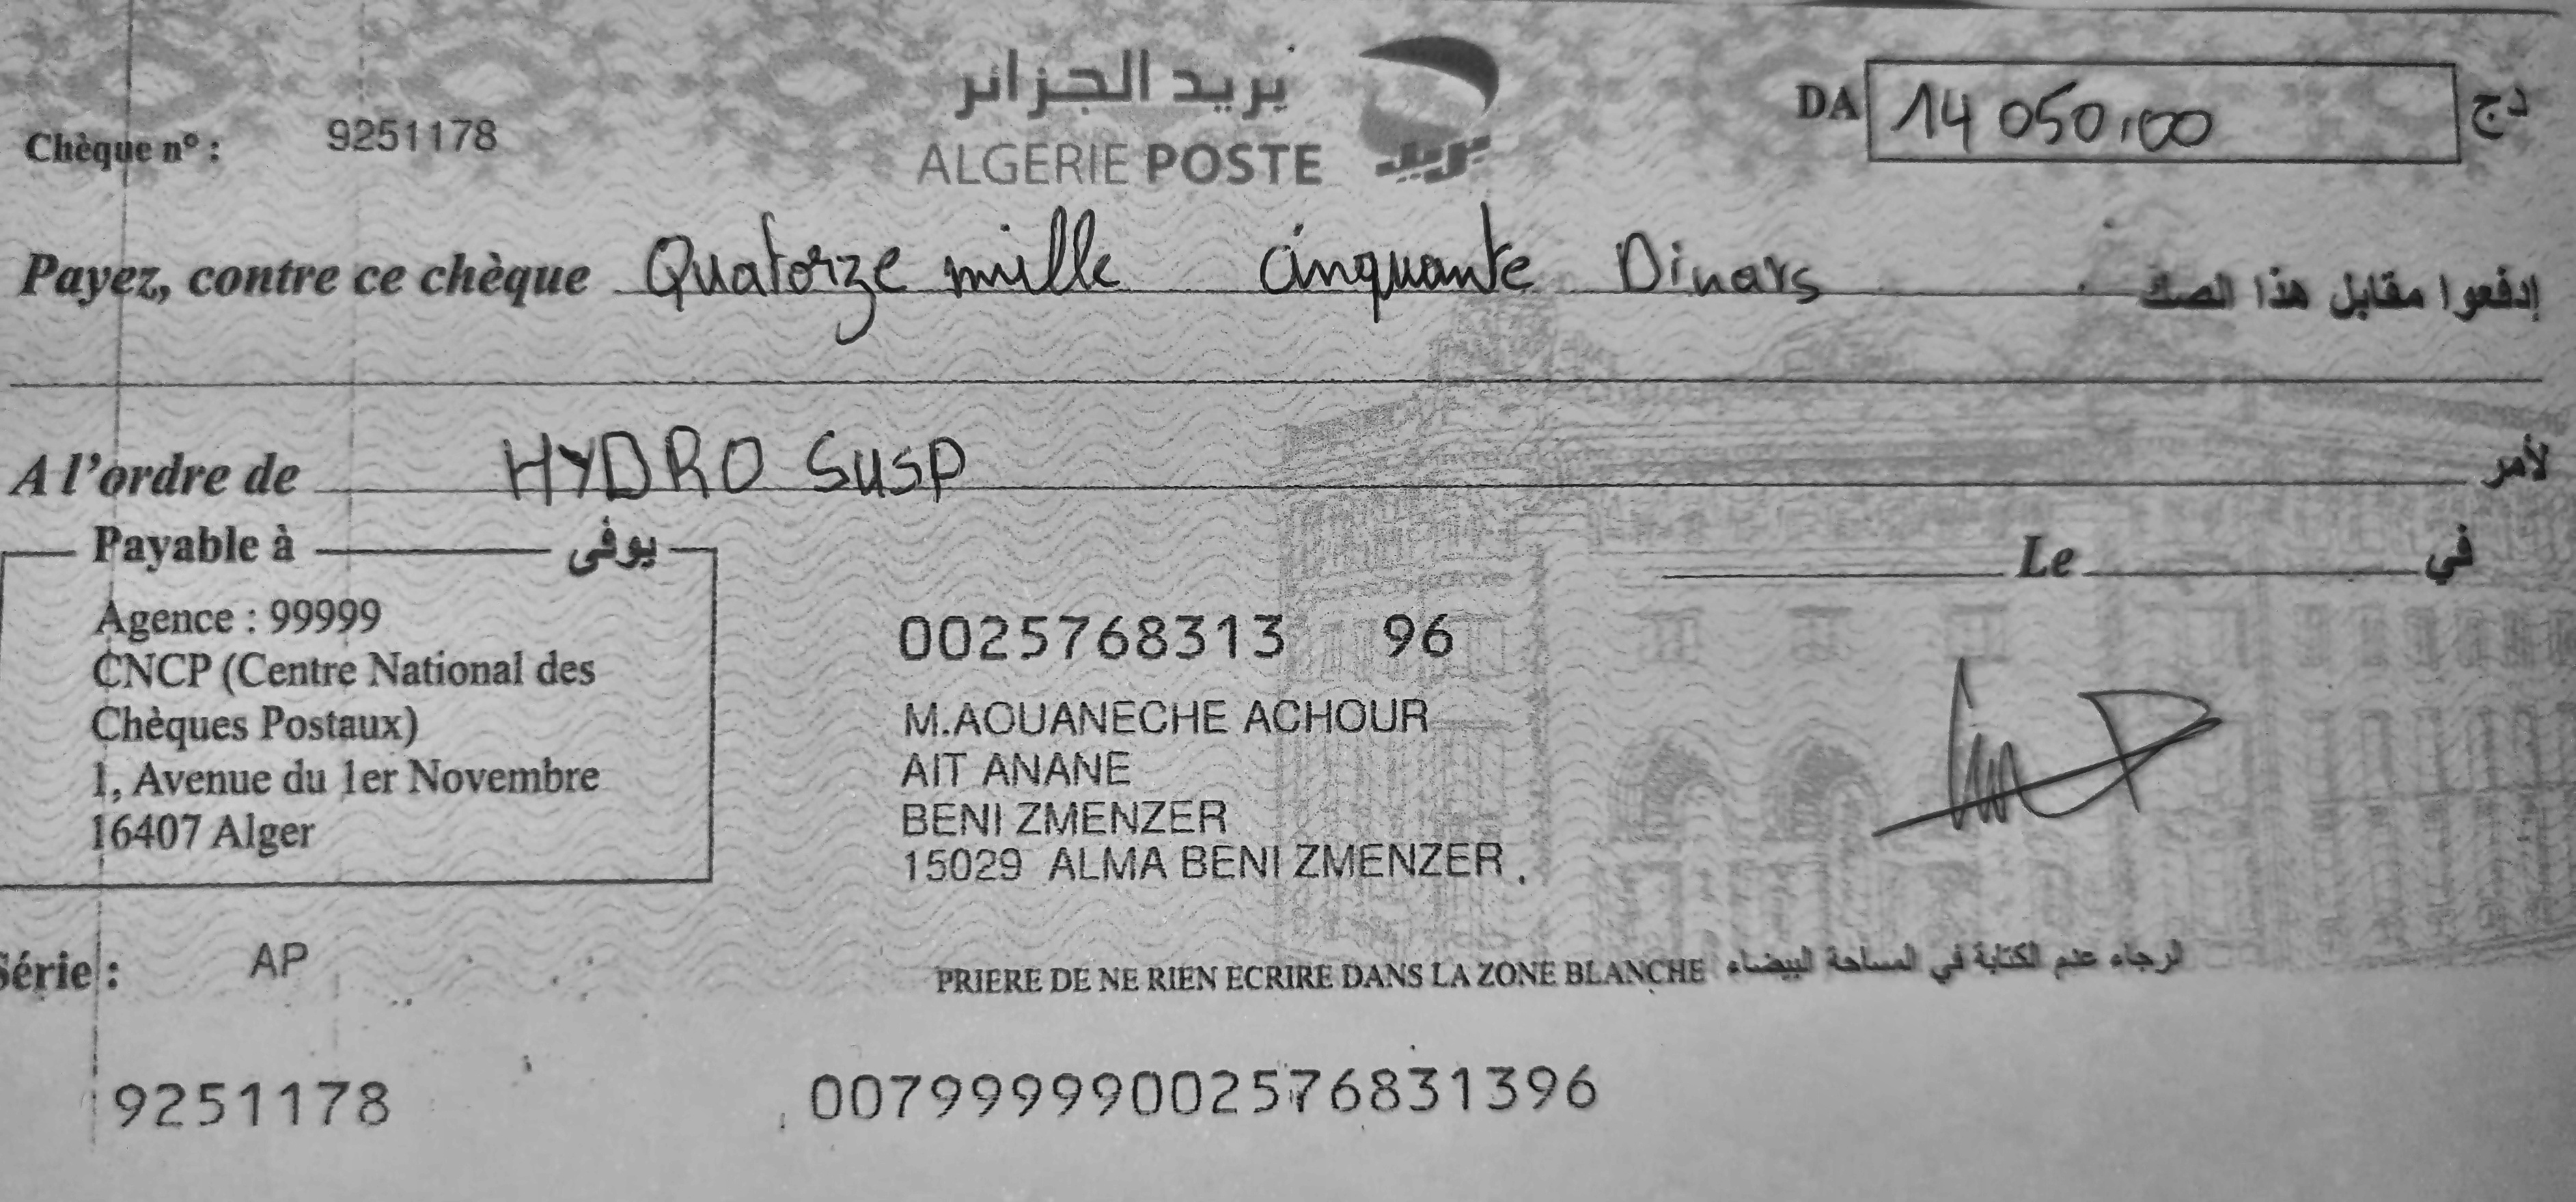 بريد الجزائر
ALGERIE POSTE بريد
Chèque n° : 9251178
DA 14 050,00 دج
Payez, contre ce chèque Quatorze mille cinquante Dinars إدفعوا مقابل هذا الصك
A l'ordre de HYDRO SUSP لأمر
Payable à يوفى
Le في
Agence : 99999
CNCP (Centre National des
Chèques Postaux)
1, Avenue du 1er Novembre
16407 Alger
0025768313 96
M.AOUANECHE ACHOUR
AIT ANANE
BENI ZMENZER
15029 ALMA BENI ZMENZER
Série : AP
PRIERE DE NE RIEN ECRIRE DANS LA ZONE BLANCHE الرجاء عدم الكتابة في المساحة البيضاء
9251178 00799999002576831396